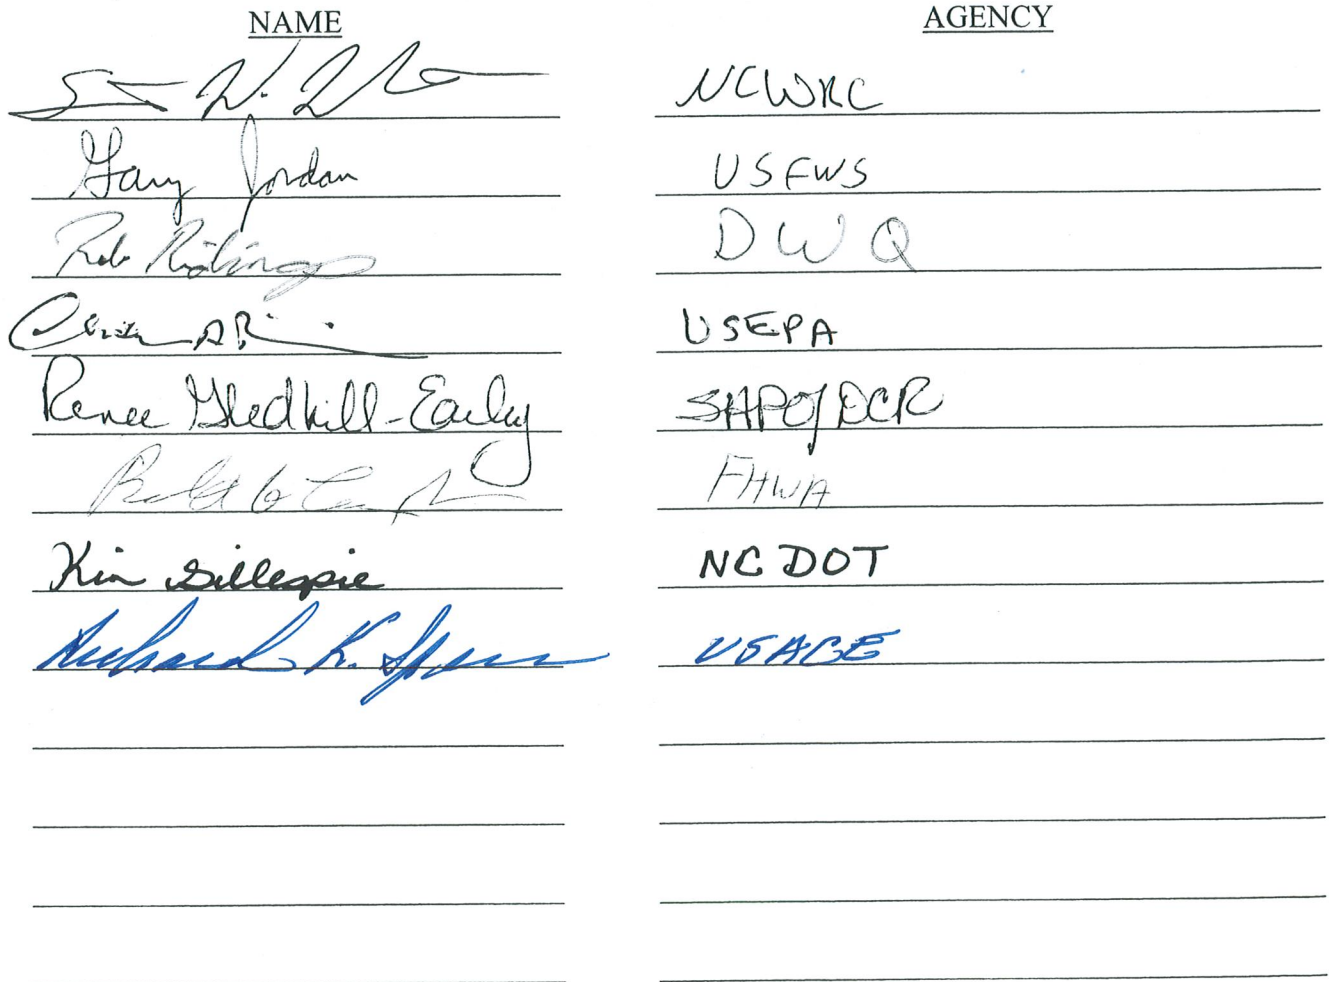 NAME AGENCY
W. NCWRC
Gary Jordan USFWS
Rob Ridings DWQ
USEPA
Renee Gledhill-Earley SHPO/DCR
FHWA
Kim Gillespie NCDOT
Richard K. Spencer USACE